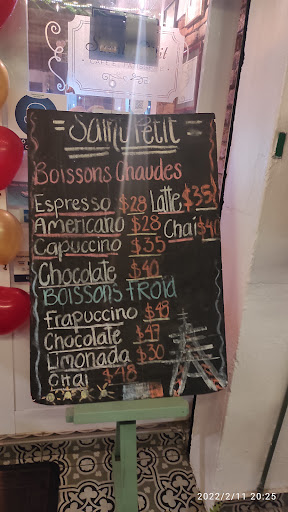 = Samy Petit =
Boissons Chaudes
Espresso $28 Latte $35
Americano $28 Chai $40
Capuccino $35
Chocolate $40
Boissons Froid
Frapuccino $48
Chocolate $47
Limonada $30
Chai $48
2022/2/11 20:25